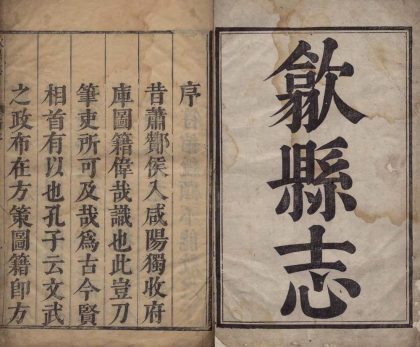 歙縣志
序
昔蕭酇侯入咸陽獨收府
庫圖籍偉哉識也此豈刀
筆吏所可及哉為古今賢
相首有以也孔子云文武
之政布在方策圖籍卽方